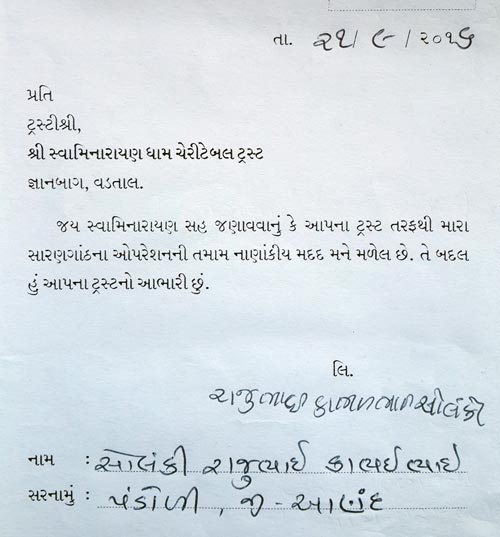 તા. ૨૧/૯/૨૦૧૬
પ્રતિ
ટ્રસ્ટીશ્રી,
શ્રી સ્વામિનારાયણ ધામ ચેરીટેબલ ટ્રસ્ટ
જ્ઞાનબાગ, વડતાલ.
જય સ્વામિનારાયણ સહ જણાવવાનું કે આપના ટ્રસ્ટ તરફથી મારા
સારણગાંઠના ઓપરેશનની તમામ નાણાંકીય મદદ મને મળેલ છે. તે બદલ
હું આપના ટ્રસ્ટનો આભારી છું.
લિ.
રાજુભાઈ સોલંકી
નામ : સોલંકી રાજુભાઈ
સરનામું : પંડોળી, જી - આણંદ